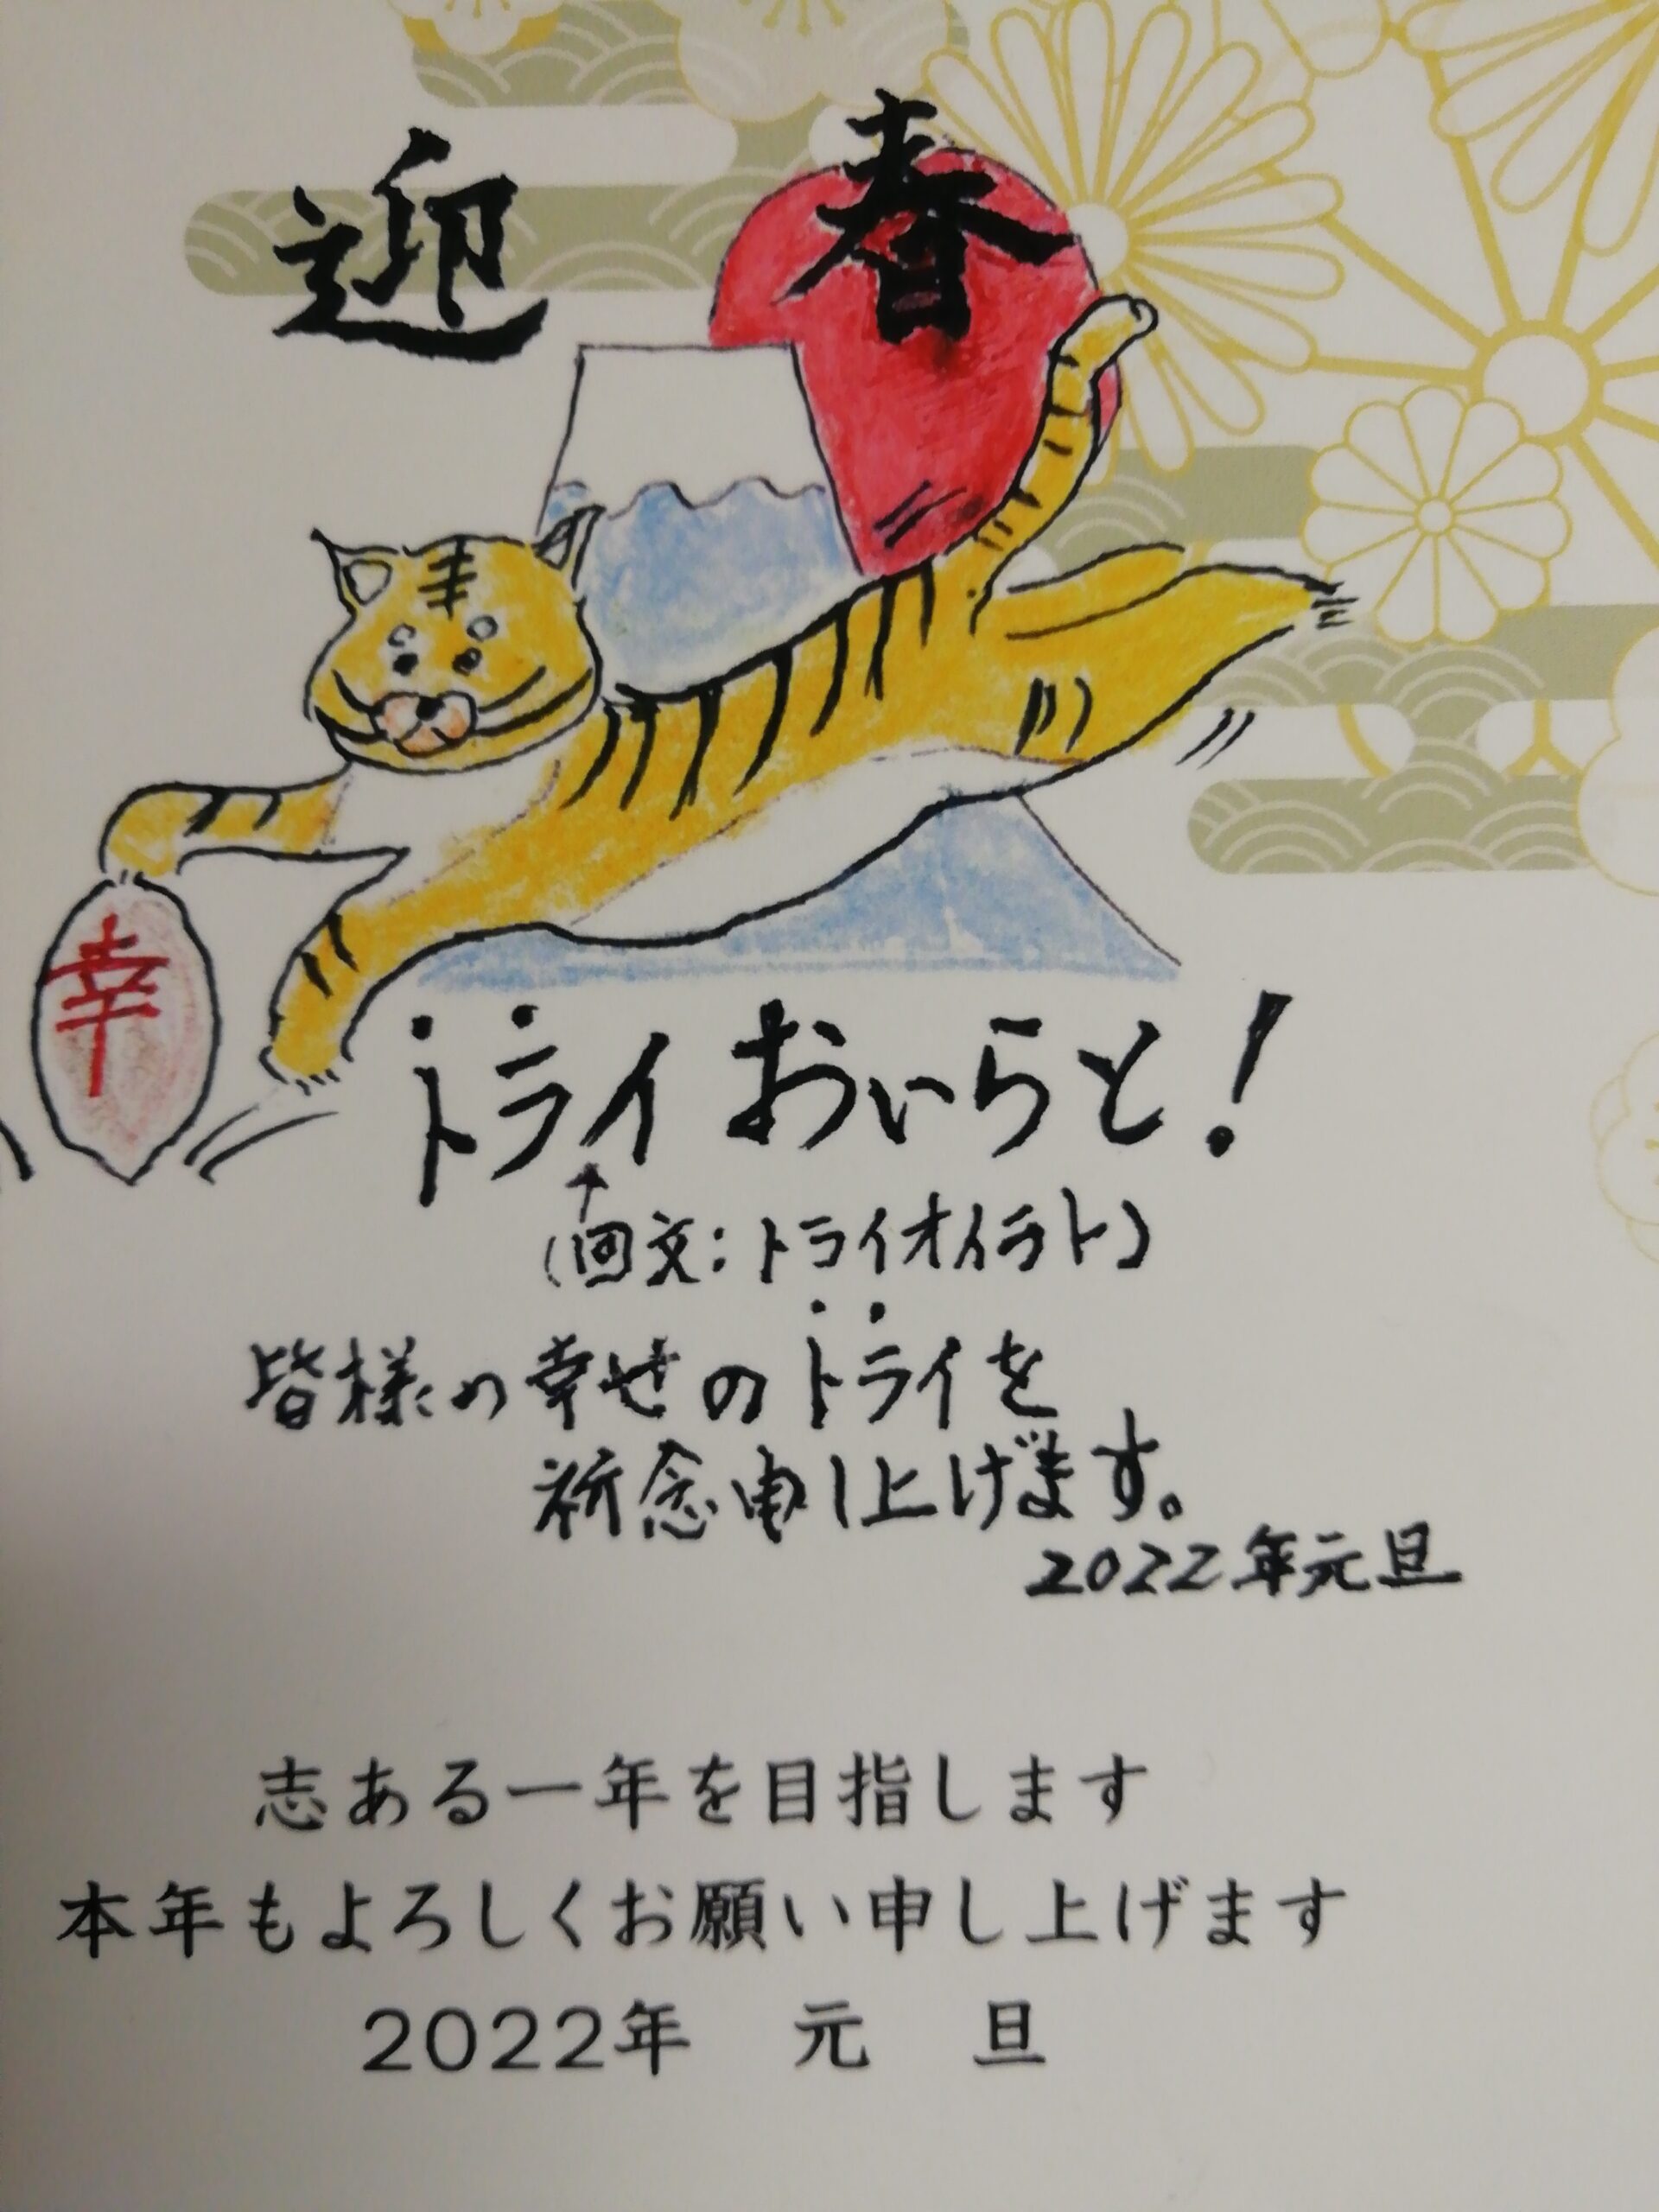 迎春
幸
トライおいらと!
(回文:トライオイラト)
皆様の幸せのトライを
祈念申し上げます。
2022年元旦
志ある一年を目指します
本年もよろしくお願い申し上げます
2022年 元 旦